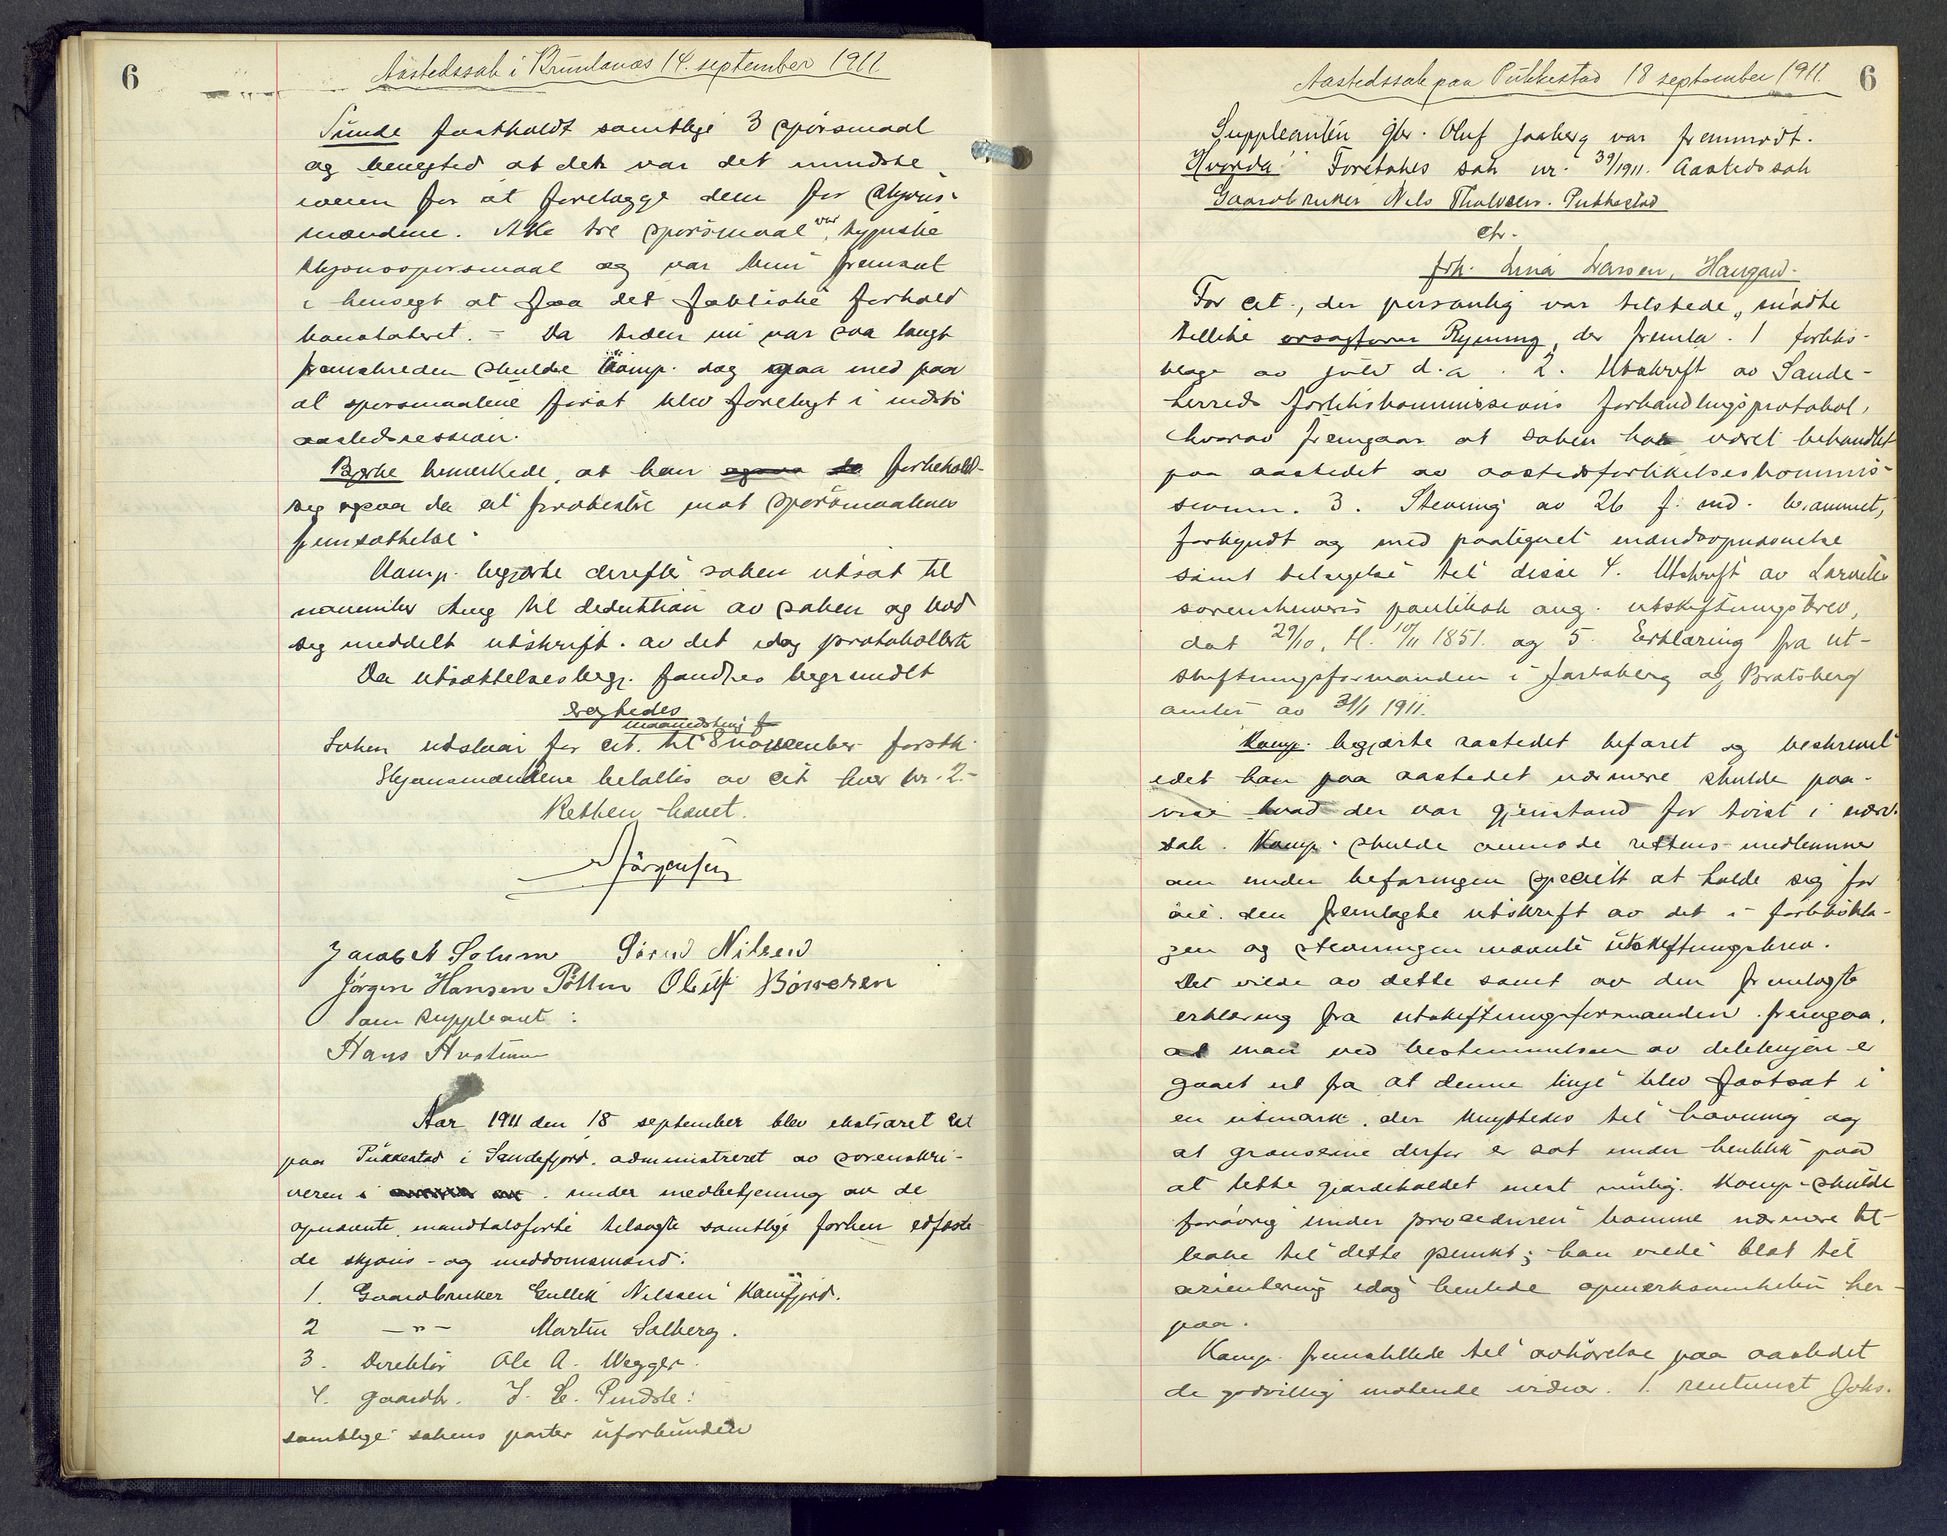 6
Aastedssak i Brunlanæs 14. september 1911.
Sunde fastholdt samtlige 3 spörsmaal
og benegted at det var det mindste
iveien for at forelægge dem for skjöns-
mændene. Alle tre spörsmaal var typiske
skjönsspörsmaal og var kun fremsat
i hensegt at faa det faktiske forhold
konstateret. – Da tiden nu var saa langt
fremskreden skulde Kamp. dog gaa med paa
at spörsmaalene först blev forelagt i næste
aastedssession.
Bjerke bemerkede, at han forbeholdt
sig ogsaa da at protestere mot spörsmaalenes
fremsættelse.
Kamp. begjærte derefter saken utsat til
november ting til deduktion av saken og bad
sig meddelt utskrift av det idag protokollerte
Da utsættelsesbegj. fandtes begrundet
eragtedes
maanedsting
Saken utstaar for cit. til 8 november förstk.
Skjönsmændene betaltes av cit hver kr. 2.-
Retten hævet.
Jörgensen
Jacob A Solum Sørend Nilsen
Jörgen Hansen Pöllen Oluf Börresen
Som suppleant:
Hans Hvatum
Aar 1911 den 18 september blev ekstraret sat
paa Pukkestad i Sandefjord, administreret av sorenskri-
veren i under medbetjening av de
opnævnte, mandtalsförte tilsagte samtlige forhen edfæste-
de skjöns- og meddomsmænd:
1. Gaardbruker Gullik Nilssen Kamfjord.
2 —"— Martin Solberg.
3. Direktör Ole A. Wegger.
4. gaardbr. J. L. Pindsle:
samtlige sakens parter uforbunden
Aastedssak paa Pukkestad 18 september 1911.
6
Suppleanten gbr. Oluf Jaaberg var fremmödt.
Hvorda: Foretokes sak nr. 39/1911. Aastedssak
Gaardbruker Nils Thalvsen. Pukkestad
ctr.
frk. Lina Larsen, Haugard.
For cit., der personlig var tilstede, mödte
tillike orsagförer Rynning, der fremla. 1 forliks-
klage av juli d.a. 2. Utskrift av Sande-
herreds forlikskommissions forhandlingsprotokol,
hvorav fremgaar at saken har været behandlet
paa aastedet av aastedsforlikelseskommis-
sionen. 3. Stevning av 26 f. md. beramet,
forkyndt og med paategnet mandsopnævnelse
samt tilsigelse til disse 4. Utskrift av Larviks
sorenskriveris pantebok ang. utskiftningsbrev,
dat 29/10, tl. 10/11 1851. og 5. Erklæring fra ut-
skiftningsformanden i Jarlsberg og Bratsberg
amter av 31/1 1911.
Kamp. begjærte aastedet befaret og beskrevet
idet han paa aastedet nærmere skulde paa-
vise hvad der var gjenstand for tvist i nærv.
sak. Kamp. skulde anmode rettens medlemmer
om under befaringen specielt at holde sig for
öie den fremlagte utskrift av det i forliksla-
gen og stevningen nævnte utskiftningsbrev.
Det vilde av dette samt av den fremlagte
erklæring fra utskiftningsformanden fremgaa,
at man ved bestemmelsen av delelinjen er
gaaet ut fra at denne linje blev fastsat i
en utmark, der knyttedes til havning og
at grænserne derfor er sat under henblik paa
at lette gjærdeholdet mest mulig. Kamp. skulde
forövrig under proceduren komme nærmere til-
bake til dette punkt; han vilde blot til
orientering idag henlede opmerksomheten her-
paa.
Kamp. fremstillede til avhörelse paa aastedet
de godvillig mötende vidner. 1. rentenist Johs.